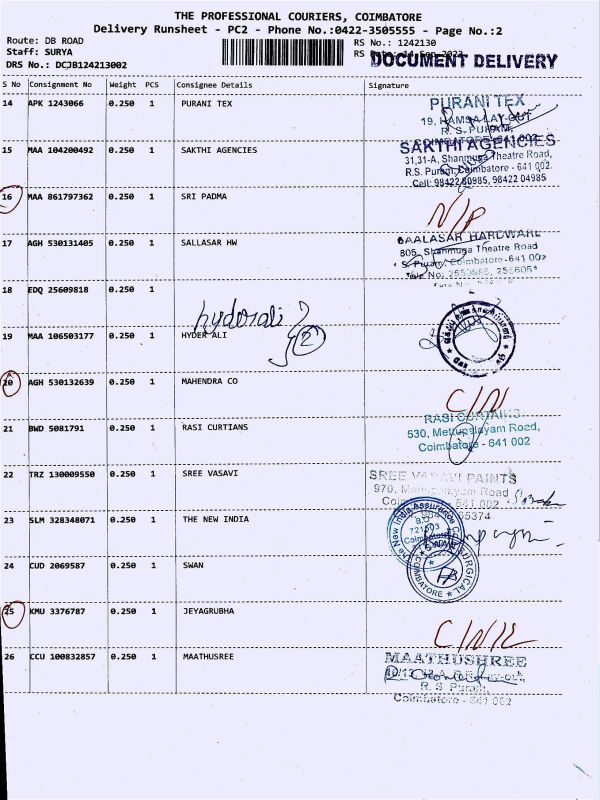 THE PROFESSIONAL COURIERS, COIMBATORE
Delivery Runsheet - PC2 - Phone No.:0422-3505555 - Page No.:2
Route: DB ROAD
RS No.: 1242130
Staff: SURYA
RS
DOCUMENT DELIVERY
DRS No.: DCJB124213002
S No Consignment No Weight PCS Consignee Details Signature
14 APK 1243066 0.250 1 PURANI TEX
PURANI TEX
19, HAMSA LAY-OUT
R. S. PURAM,
15 MAA 104200492 0.250 1 SAKTHI AGENCIES
SAKTHI AGENCIES
31,31-A, Shanmuga Theatre Road,
R.S. Puram, Coimbatore - 641 002.
Cell: 98422 60985, 98422 04985
16 MAA 861797362 0.250 1 SRI PADMA
N/P
17 AGH 530131405 0.250 1 SALLASAR HW
SAALASAR HARDWARE
805, Shanmuga Theatre Road
S. Puram, Coimbatore-641 002
18 EDQ 25609818 0.250 1
hyderali
2
19 MAA 106503177 0.250 1 HYDER ALI
20 AGH 530132639 0.250 1 MAHENDRA CO
21 BWD 5081791 0.250 1 RASI CURTIANS
RASI CURTAINS
530, Mettupalayam Road,
Coimbatore - 641 002
22 TRZ 130009550 0.250 1 SREE VASAVI
SREE VASAVI PAINTS
970, Mettupalayam Road
641 002
23 SLM 328348071 0.250 1 THE NEW INDIA
The New India Assurance
721503
Coimbatore
24 CUD 2069587 0.250 1 SWAN
SWAN SURGICAL
COIMBATORE
25 KMU 3376787 0.250 1 JEYAGRUBHA
26 CCU 100832857 0.250 1 MAATHUSREE
MAATHUSHREE
R. S. Puram,
Coimbatore - 641 002